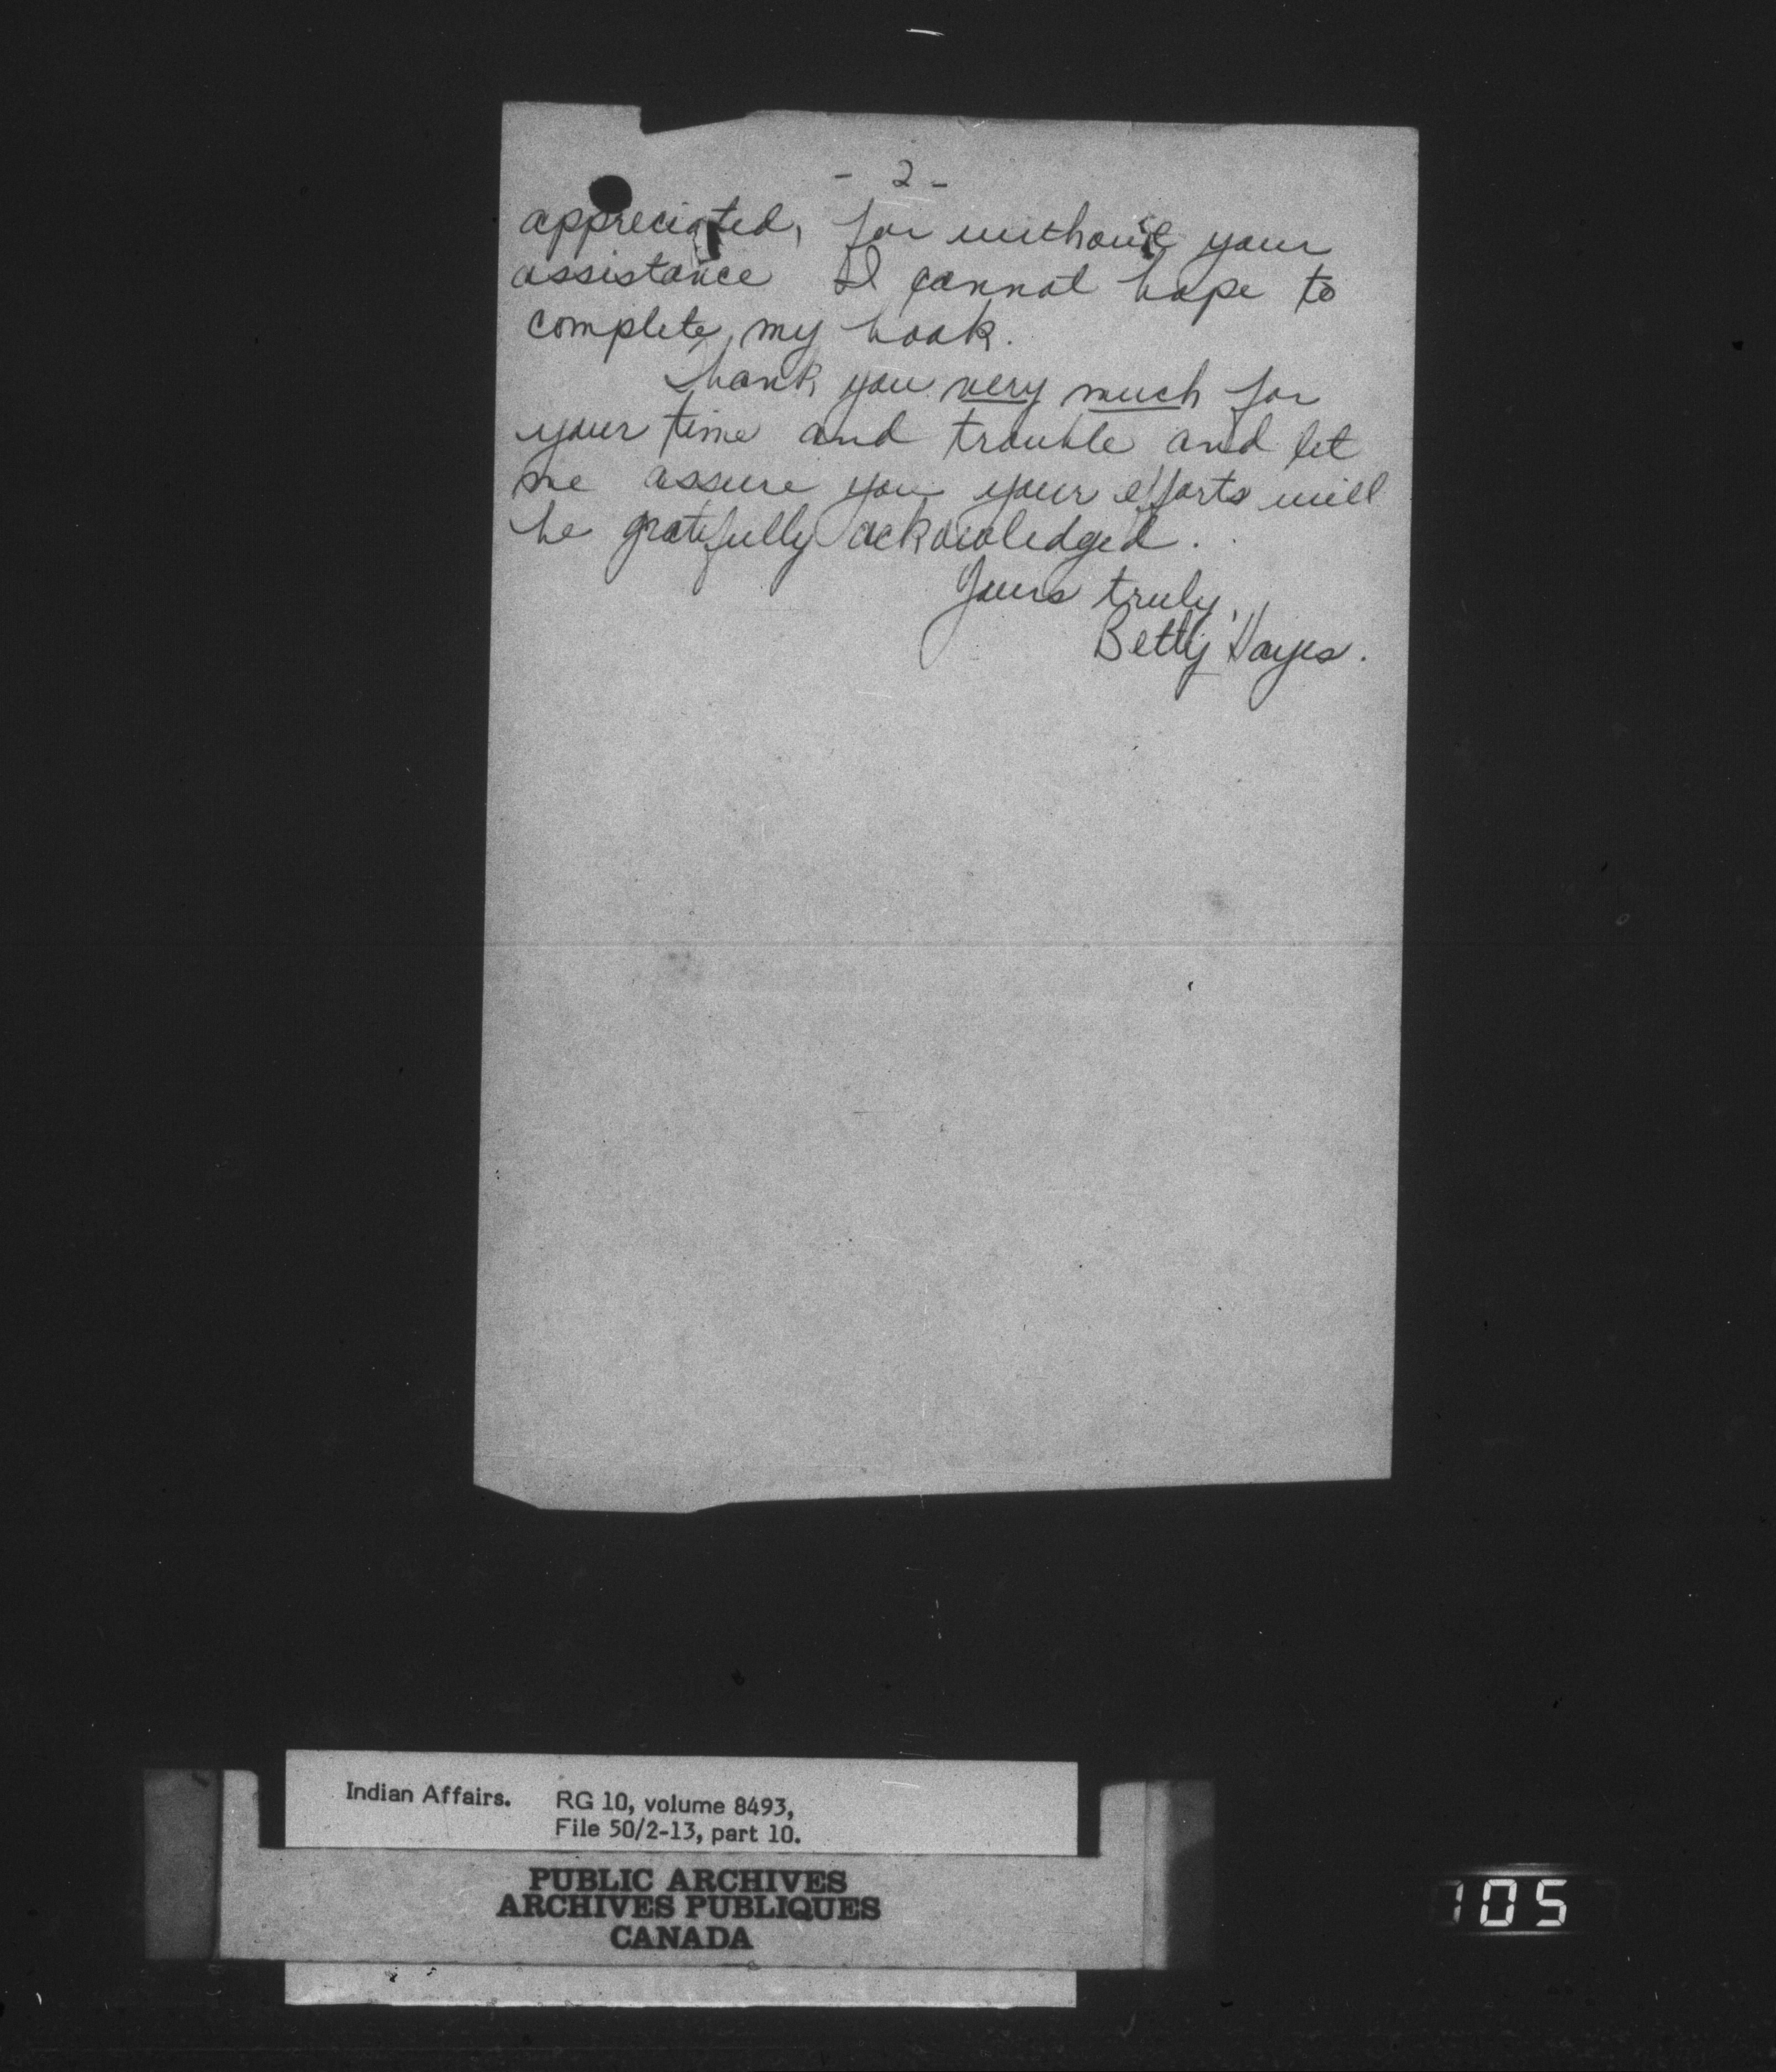 - 2 -
appreciated, for without your
assistance I cannot hope to
complete my book.
Thank you very much for
your time and trouble and let
me assure you your efforts will
be gratefully acknowledged.
Yours truly,
Betty Hayes.
Indian Affairs. RG 10, volume 8493,
File 50/2-13, part 10.
PUBLIC ARCHIVES
ARCHIVES PUBLIQUES
CANADA
105